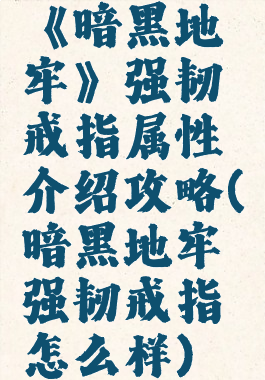 《暗黑地
牢》强韧
戒指属性
介绍攻略(
暗黑地牢
强韧戒指
怎么样)